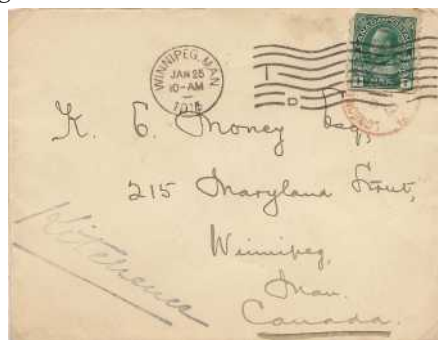 WINNIPEG, MAN
JAN 25
10-AM
K. E. Money Esq,
215 Maryland Street,
Winnipeg,
Man.
Canada.